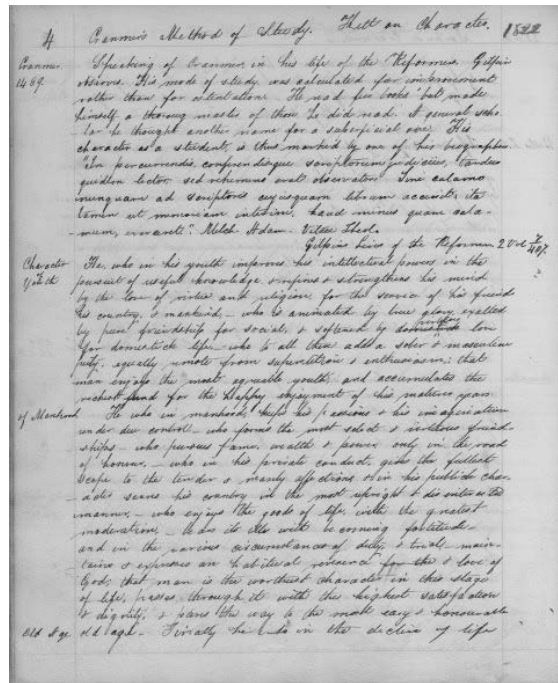 4 Cranmer's Method of Study. Hill on Character. 1822
Cranmer Speaking of Cranmer in his life of the Reformers, Gilpin
1489. observes. His mode of study was calculated for improvement
rather than for ostentation. He read few books but made
himself a thoroug master of those he did read. A general scho
lar he thought another name for a superficial one. His
character as a student, is thus marked by one of his biographers
"In percurrendis, conferendisque scriptorum judiciis, tardus
quidem lector sed vehemens erat observator. Sine calamo
nunquam ad scriptoris cujusquam librum accessit; ita
tamen ut memoriam interim, haud minus quam cala-
mum, exerceret." Melch Adam. Vitae Theol.
Gilpins Lives of the Reformers 2 Vol
Character He, who in his youth improves his intellectual powers in the
Youth pursuit of useful knowledge, & refines & strengthens his mind
by the love of virtue and religion, for the service of his friends
his country, & mankind, - who is animated by true glory, exalted
by pure friendship for social, & softened by virtuous love
for domestick life - who to all these adds a sober & masculine
piety, equally remote from superstition & enthusiasm; that
man enjoys the most agreeable youth, and accumulates the
richest fund for the happy enjoyment of his mature years.
of Manhood He who in manhood, keeps his passions & his imagination
under due control - who forms the most select & virtuous friend
ships - who pursues fame, wealth & power only in the road
of honour, - who in his private conduct, gives the fullest
scope to the tender & manly affections & in his publick char
acter serves his country in the most upright & disinterested
manner, - who enjoys the goods of life, with the greatest
moderation, - bears its ills with becoming fortitude -
and in the various circumstances of duty, & trial - main-
tains & expresses an habitual reverence for the & love of
God; that man is the worthiest character in this stage
of life, passes through it with the highest satisfaction
& dignity, & paves the way to the most easy & honourable
Old Age old age - Finally he who in the decline of life